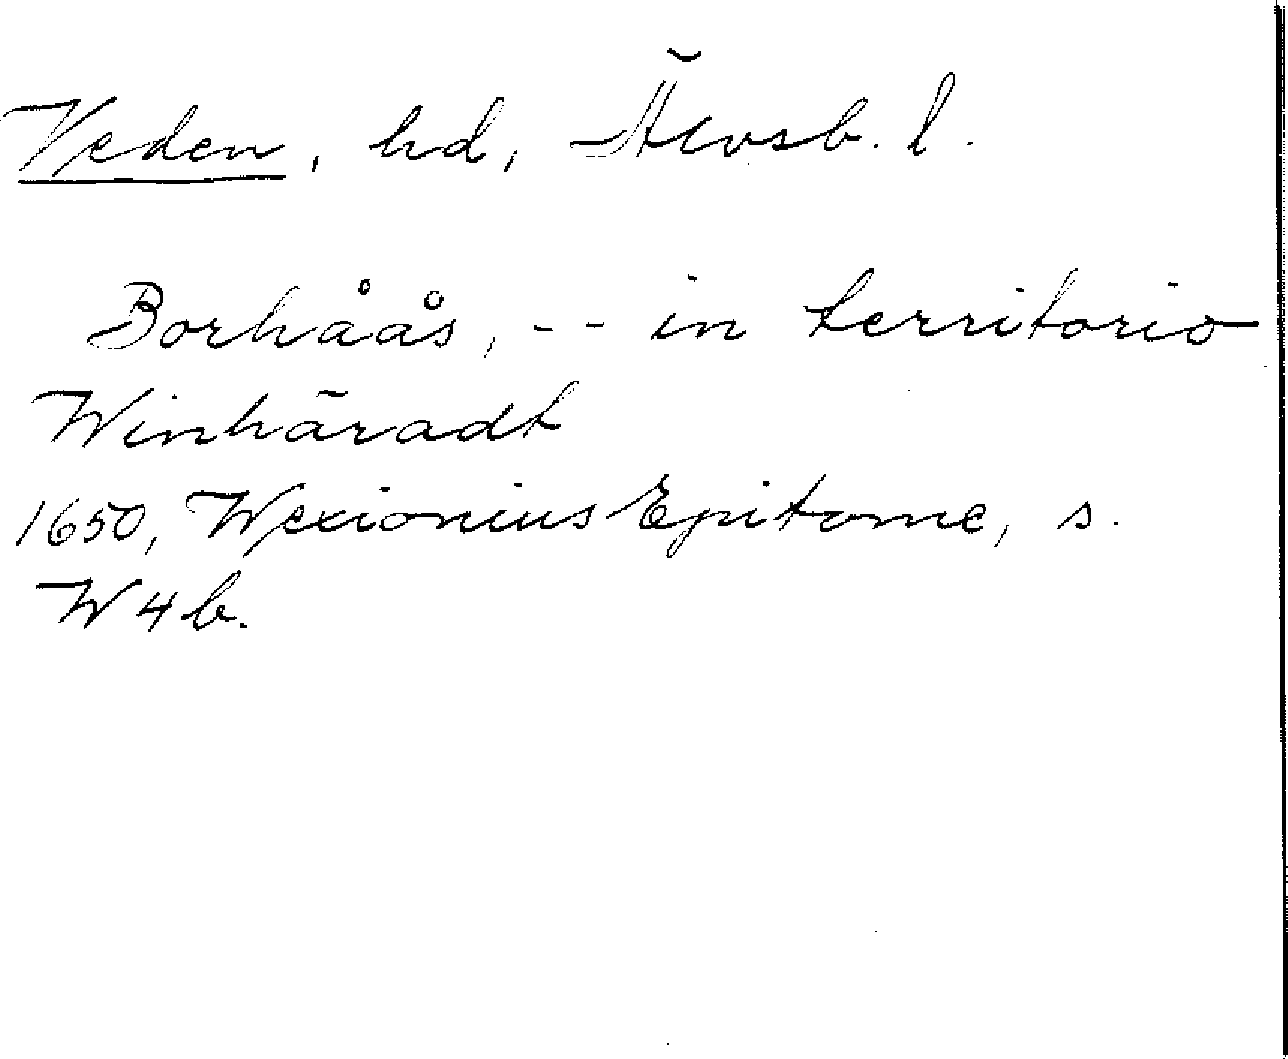 Veden, hd, Älvsb. l.
Borhåås, -- in territorio
Winhäradt
1650, Wexionius Epitome, s.
W4b.